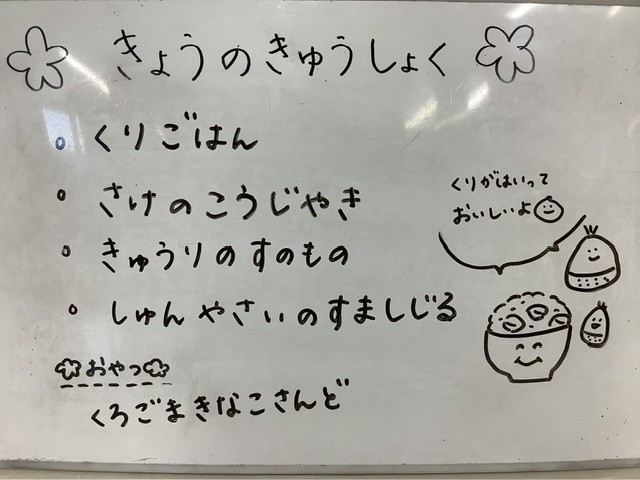 きょうのきゅうしょく
くりごはん
さけのこうじやき
きゅうりのすのもの
しゅんやさいのすましじる
くりがはいって
おいしいよ
おやつ
くろごまきなこさんど